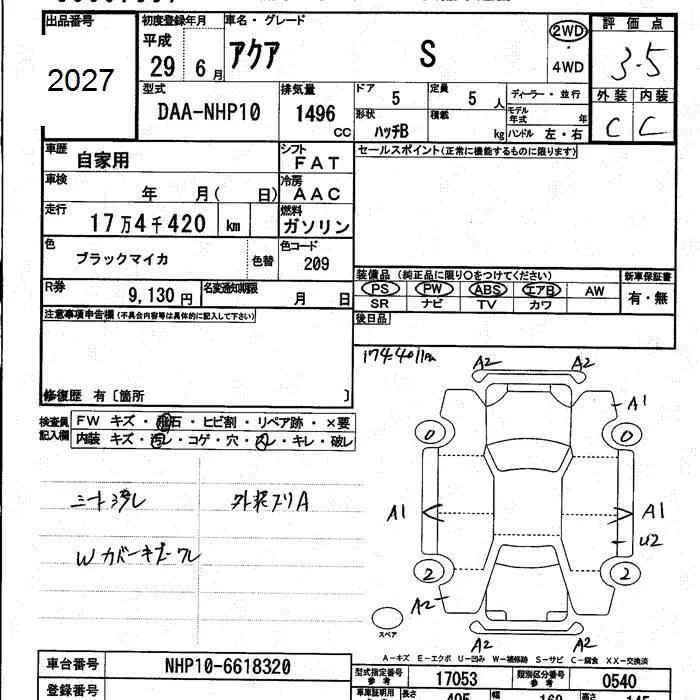 出品番号
2027
初度登録年月
平成
29 年 6 月
車名・グレード
アクア S
2WD
・
4WD
評価点
3.5
外装 内装
C C
型式
DAA-NHP10
排気量
1496
CC
ドア
5
定員
5 人
ディーラー・並行
モデル年式 年
形状
ハッチB
積載
kg
ハンドル 左・右
車歴
自家用
シフト
FAT
セールスポイント(正常に機能するものに限ります)
車検
年 月( 日)
冷房
AAC
走行
17万4千420 km
燃料
ガソリン
色
ブラックマイカ
色替
色コード
209
装備品 (純正品に限り○をつけてください)
PS PW ABS エアB AW
SR ナビ TV カワ
新車保証書
有・無
R券
9,130 円
名変通知期限
月 日
後日品
注意事項申告欄(不具合内容等は具体的に記入して下さい)
修復歴 有〔箇所 〕
検査員記入欄
FW キズ・飛石・ヒビ割・リペア跡・×要
内装 キズ・汚レ・コゲ・穴・スレ・キレ・破レ
外装スリA
A2 A2
A1
0 0
A1 A1
U2
2 2
A2
A2 A2
スペア
A-キズ E-エクボ U-凹み W-補修跡 S-サビ C-腐食 XX-交換済
車台番号
NHP10-6618320
登録番号
型式指定番号
参考
17053
類別区分番号
参考
0540
長さ
幅
高さ